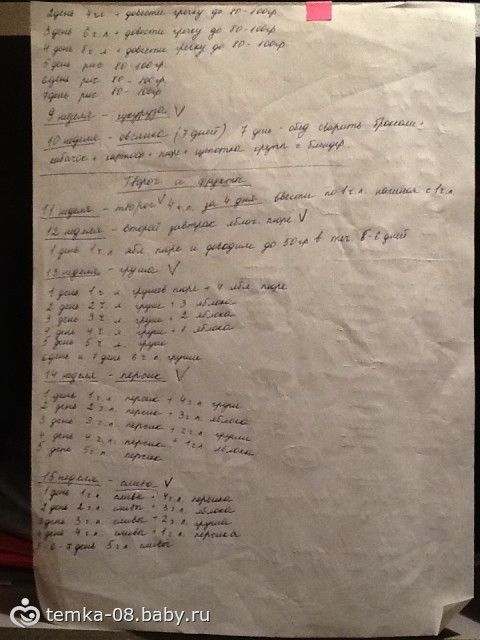 2 день 4 ч.л + довести гречку до 80-100гр
3 день 6 ч.л + довести гречку до 80-100гр
4 день 8 ч л + довести гречку до 80-100гр
5 день рис 80-100гр
6 день рис 80-100гр
7 день рис 80-100гр
9 неделя - кукуруза V
10 неделя - овсянка (7 дней) 7 день - обед сварить брокколи +
кабачок + картошка + пюре + щепотка крупы = блендер
Творог и фрукты
11 неделя - творог V 4 ч.л. за 4 дня ввести по 1 ч.л. начиная с 1 ч.л.
12 неделя - второй завтрак яблоч. пюре V
1 день 1 ч.л ябл. пюре и доводим до 50гр в теч. дней
13 неделя - груша V
1 день 1 ч л грушев пюре + 4 ябл. пюре
2 день 2 ч. л груши + 3 яблока
3 день 3 ч. л груши + 2 яблока
4 день 4 ч л груши + 1 яблока
5 день 5 ч. л. груши
6 день и 7 день 6 ч. л груши
14 неделя - персик V
1 день 1 ч.л. персик + 4 ч.л. груши
2 день 2 ч.л. персик + 3 ч.л. яблока
3 день 3 ч.л. персик + 2 ч.л. груши
4 день 4 ч.л. персика + 1 ч.л. яблока
5 день 5 ч.л. персик
15 неделя - слива V
1 день 1 ч.л сливы + 4 ч.л. персика
2 день 2 ч.л сливы + 3 ч.л яблока
3 день 3 ч.л сливы + 2 ч.л. груша
4 день 4 ч.л сливы + 1 ч.л. персика
5-6-7 день 5 ч.л сливы
temka-08.baby.ru